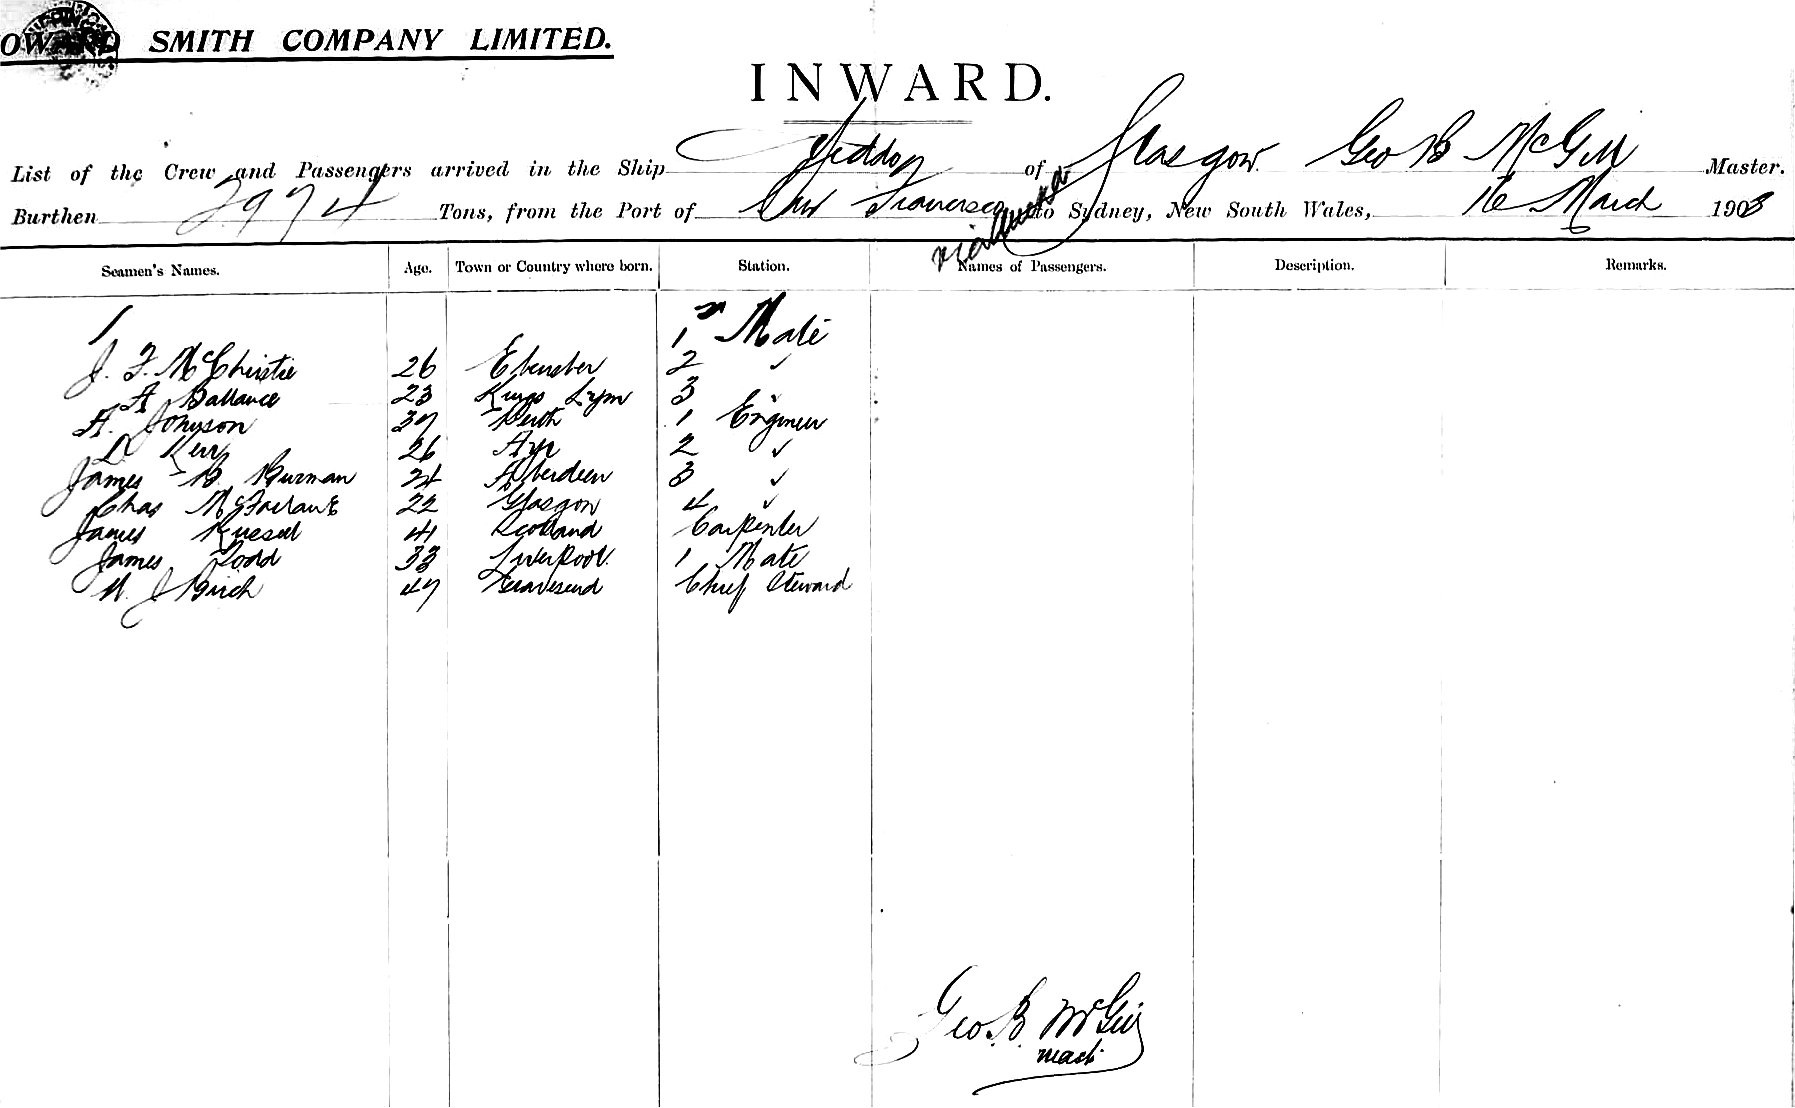 OWARD SMITH COMPANY LIMITED.
INWARD.
List of the Crew and Passengers arrived in the Ship Yeddo of Glasgow. Geo B McGill Master.
Burthen 2974 Tons, from the Port of San Francisco to Sydney, New South Wales, 16 March 1903
via
Seamen's Names. Age. Town or Country where born. Station. Names of Passengers. Description. Remarks.
1 Mate
J. F. McChristie 26 2 ✓
A Ballance 23 Kings Lynn 3 ✓
A. Johnson 37 Perth 1 Engineer
Kerr 26 Ayr 2 ✓
James B. Burman 24 Aberdeen 3 ✓
Chas McFarlane 22 Glasgow 4 ✓
James Russel 41 Scotland Carpenter
James Todd 33 Liverpool. 1 Mate
W. J Birch 47 Gravesend Chief Steward
Geo. B. McGill